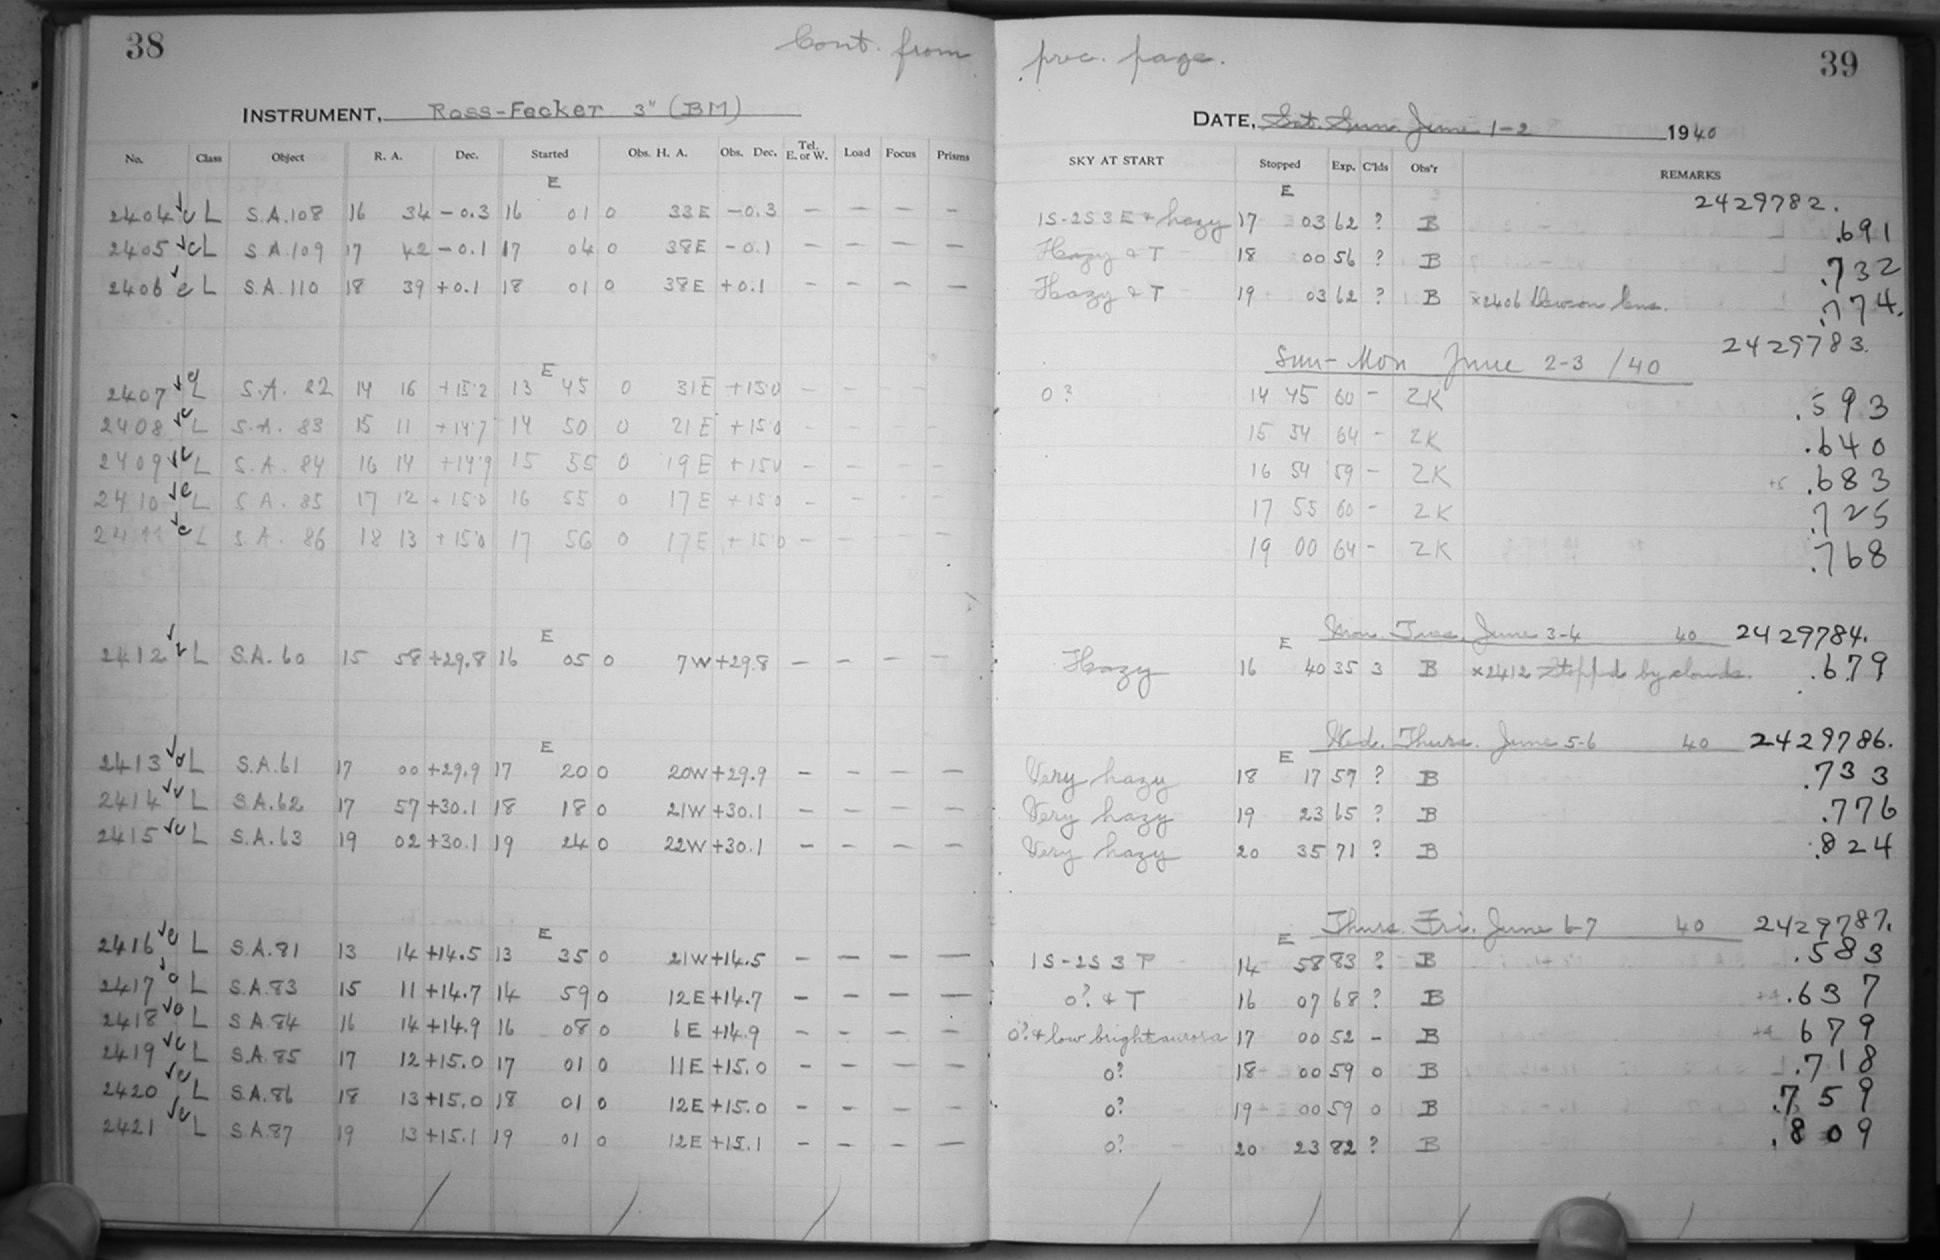 38
Cont. from
INSTRUMENT, Ross-Fecker 3" (BM)
No. Class Object R. A. Dec. Started Obs. H. A. Obs. Dec. Tel. E. or W. Load Focus Prisms
E
2404 c L S.A.108 16 34 -0.3 16 01 0 33E -0.3 — — — —
2405 c L S.A.109 17 42 -0.1 17 04 0 38E -0.1 — — — —
2406 c L S.A.110 18 39 +0.1 18 01 0 38E +0.1 — — — —
E
2407 L S.A. 82 14 16 +15.2 13 45 0 31E +15.0 — — — -
2408 c L S.A. 83 15 11 +14.7 14 50 0 21E +15.0 - - - -
2409 c L S.A. 84 16 14 +14.9 15 55 0 19E +15.0 - - - -
2410 c L S.A. 85 17 12 +15.0 16 55 0 17E +15.0 - - - -
2411 c L S.A. 86 18 13 +15.0 17 56 0 17E +15.0 - - - -
E
2412 L S.A.60 15 58 +29.8 16 05 0 7W +29.8 — — — —
E
2413 L S.A.61 17 00 +29.9 17 20 0 20W +29.9 — — — —
2414 L S.A.62 17 57 +30.1 18 18 0 21W +30.1 — — — —
2415 L S.A.63 19 02 +30.1 19 24 0 22W +30.1 — — — —
E
2416 L S.A.81 13 14 +14.5 13 35 0 21W +14.5 — — — —
2417 L S.A.83 15 11 +14.7 14 59 0 12E +14.7 — — — —
2418 L S.A.84 16 14 +14.9 16 08 0 6E +14.9 — — — —
2419 c L S.A.85 17 12 +15.0 17 01 0 11E +15.0 — — — —
2420 c L S.A.86 18 13 +15.0 18 01 0 12E +15.0 — — — —
2421 c L S.A.87 19 13 +15.1 19 01 0 12E +15.1 — — — —
prec. page.
39
DATE, Sat. Sun. June 1-2 1940
SKY AT START Stopped Exp. C'lds Obs'r REMARKS
E 2429782.
1S-2S 3 E + hazy 17 03 62 ? B .691
Hazy & T 18 00 56 ? B .732
Hazy & T 19 03 62 ? B x2406 Dewson lens. .774.
Sun-Mon June 2-3 /40 2429783.
0? 14 45 60 - ZK .593
15 54 64 - ZK .640
16 54 59 - ZK +5 .683
17 55 60 - ZK .725
19 00 64 - ZK .768
E Mon. Tues. June 3-4 40 2429784.
Hazy 16 40 35 3 B x2412 Stopped by clouds. .679
E Wed. Thurs. June 5-6 40 2429786.
Very hazy 18 17 57 ? B .733
Very hazy 19 23 65 ? B .776
Very hazy 20 35 71 ? B .824
E Thurs. Fri. June 6-7 40 2429787.
1S-2S 3 T 14 58 83 ? B .583
0? & T 16 07 68 ? B .637
0? + low bright aurora 17 00 52 - B 679
0? 18 00 59 0 B .718
0? 19 00 59 0 B .759
0? 20 23 82 ? B .809